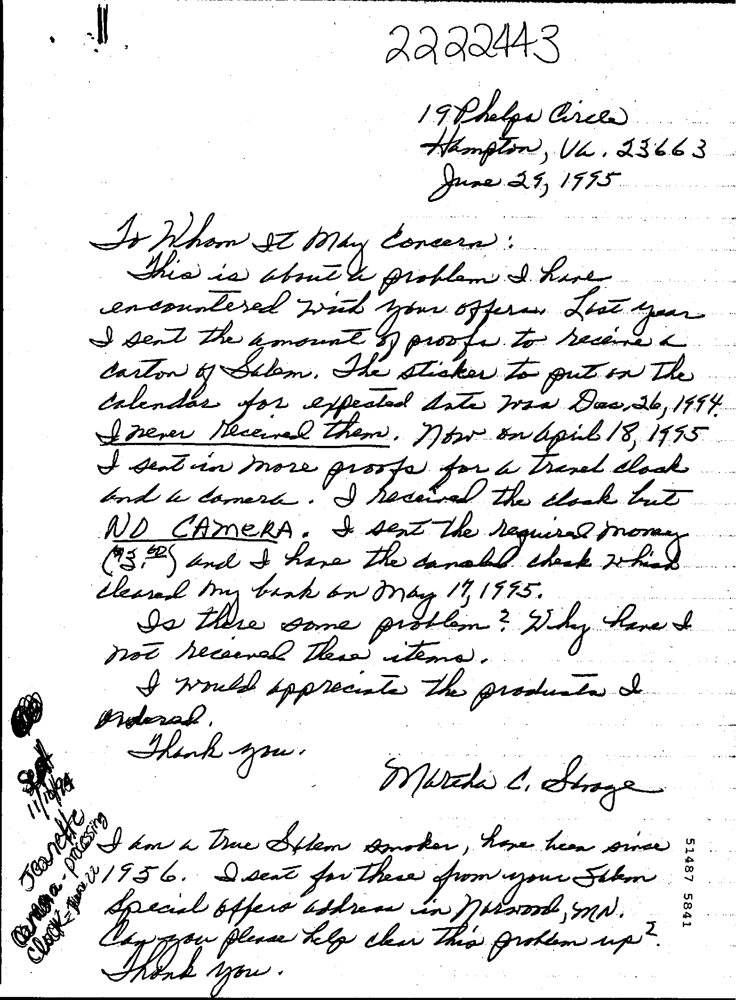 2222443
19 Phelps Circle
Hampton, Va. 23663
June 29, 1995
To Whom It May Concern:
This is about a problem I have
encountered with your offers. Last year
I sent the amount of proofs to receive a
carton of Salem. The sticker to put on the
calendar for expected date was Dec. 26, 1994.
I never received them. Now on April 18, 1995
I sent in more proofs for a travel clock
and a camera. I received the clock but
NO CAMERA. I sent the required money
($3.00) and I have the canceled check which
cleared my bank on May 17, 1995.
Is there some problem? Why have I
not received these items.
I would appreciate the products I
ordered.
Thank you.
Martha C. Savage
I am a true Salem smoker, have been since
1956. I sent for these from your Salem
Special offers address in Norwood, MN.
Can you please help clear this problem up?
Thank you.
Sent
11/10/94
Jeanette
Camera - processing
Clock - June 22
51487 5841